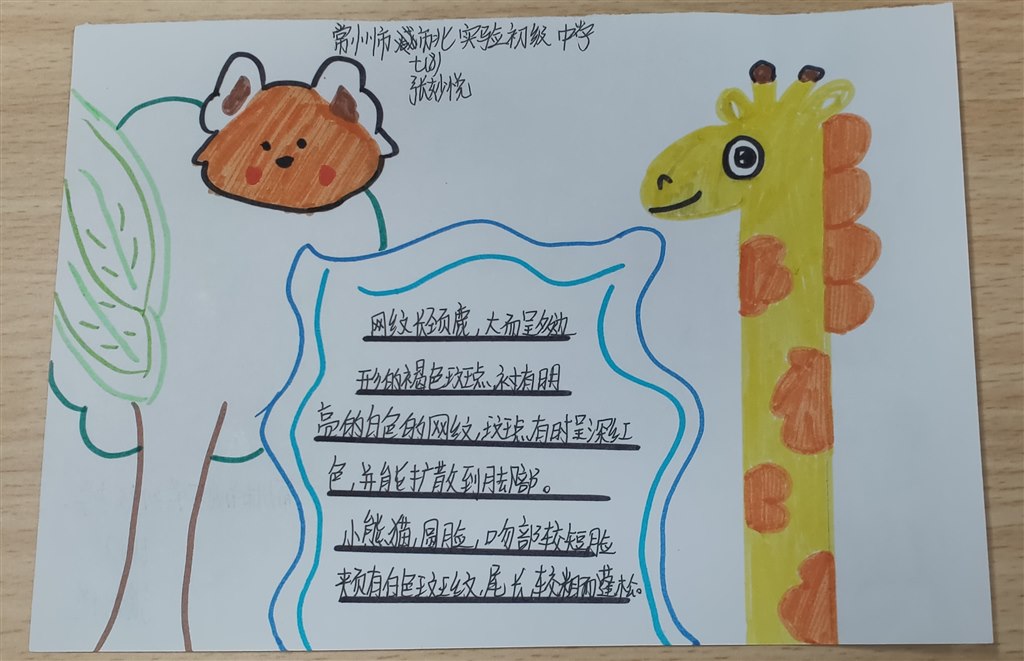 常州市市北实验初级中学
七(8)
张妙悦
网纹长颈鹿,大而呈多边
形的褐色斑点,衬有明
亮的白色的网纹,斑点有时呈深红
色,并能扩散到腿部。
小熊猫,圆脸,吻部较短脸
颊有白色斑纹,尾长,较粗而蓬松。